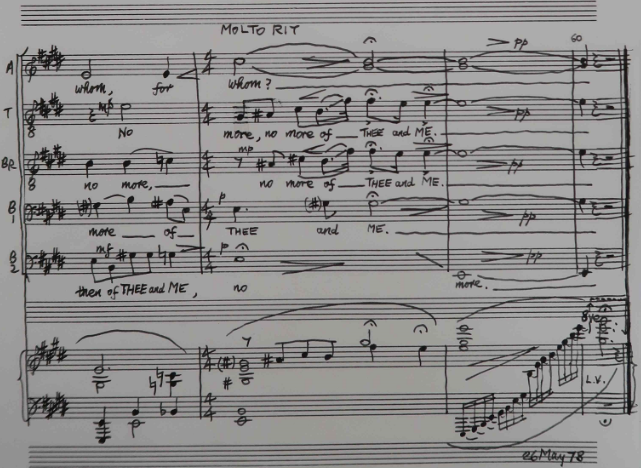 MOLTO RIT
60
pp
A
whom, for whom?
mp
pp
T
8
No more, no more of THEE and ME.
mp
pp
BR
8
no more, no more of THEE and ME.
p
pp
B
more of THEE and ME.
mf
p
pp
B2
then of THEE and ME, no more.
8ve
L.V.
26 May 78